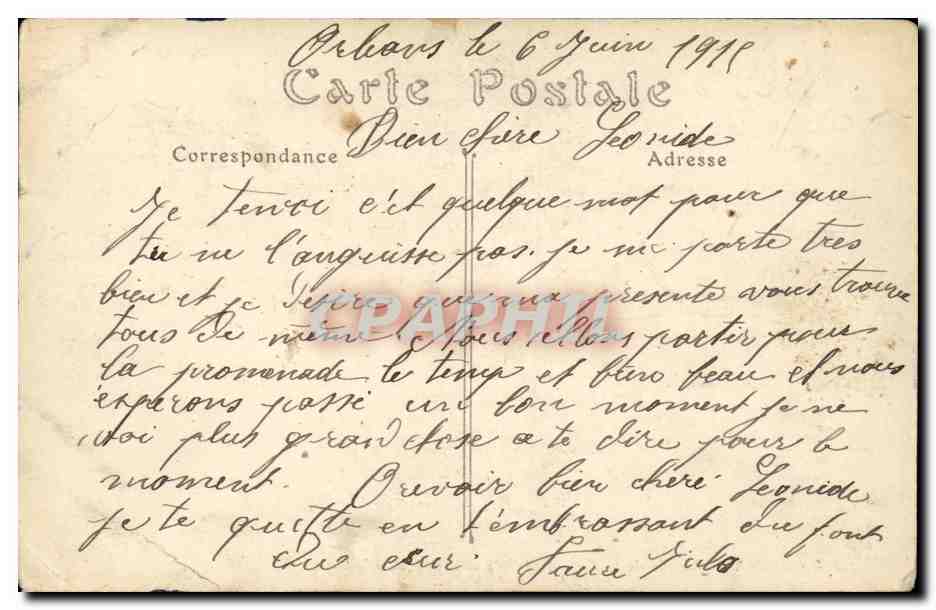 Orbans le 6 Juin 1915
Carte Postale
Bien chère Leonide
Correspondance
Adresse
Je tenvoi c'et quelque mot pour que
tu ne l'anguisse pas. je me porte tres
bien et je desire que ma presente vous trouve
tous de même Nous allons partir pour
la promenade le temp et bien beau et nous
esperons passé un bon moment je ne
voi plus grand chose a te dire pour le
moment. Orevoir bien cheré Leonide
je te quitte en t'embrassant du font
du cœur Faure
CPAPHIL